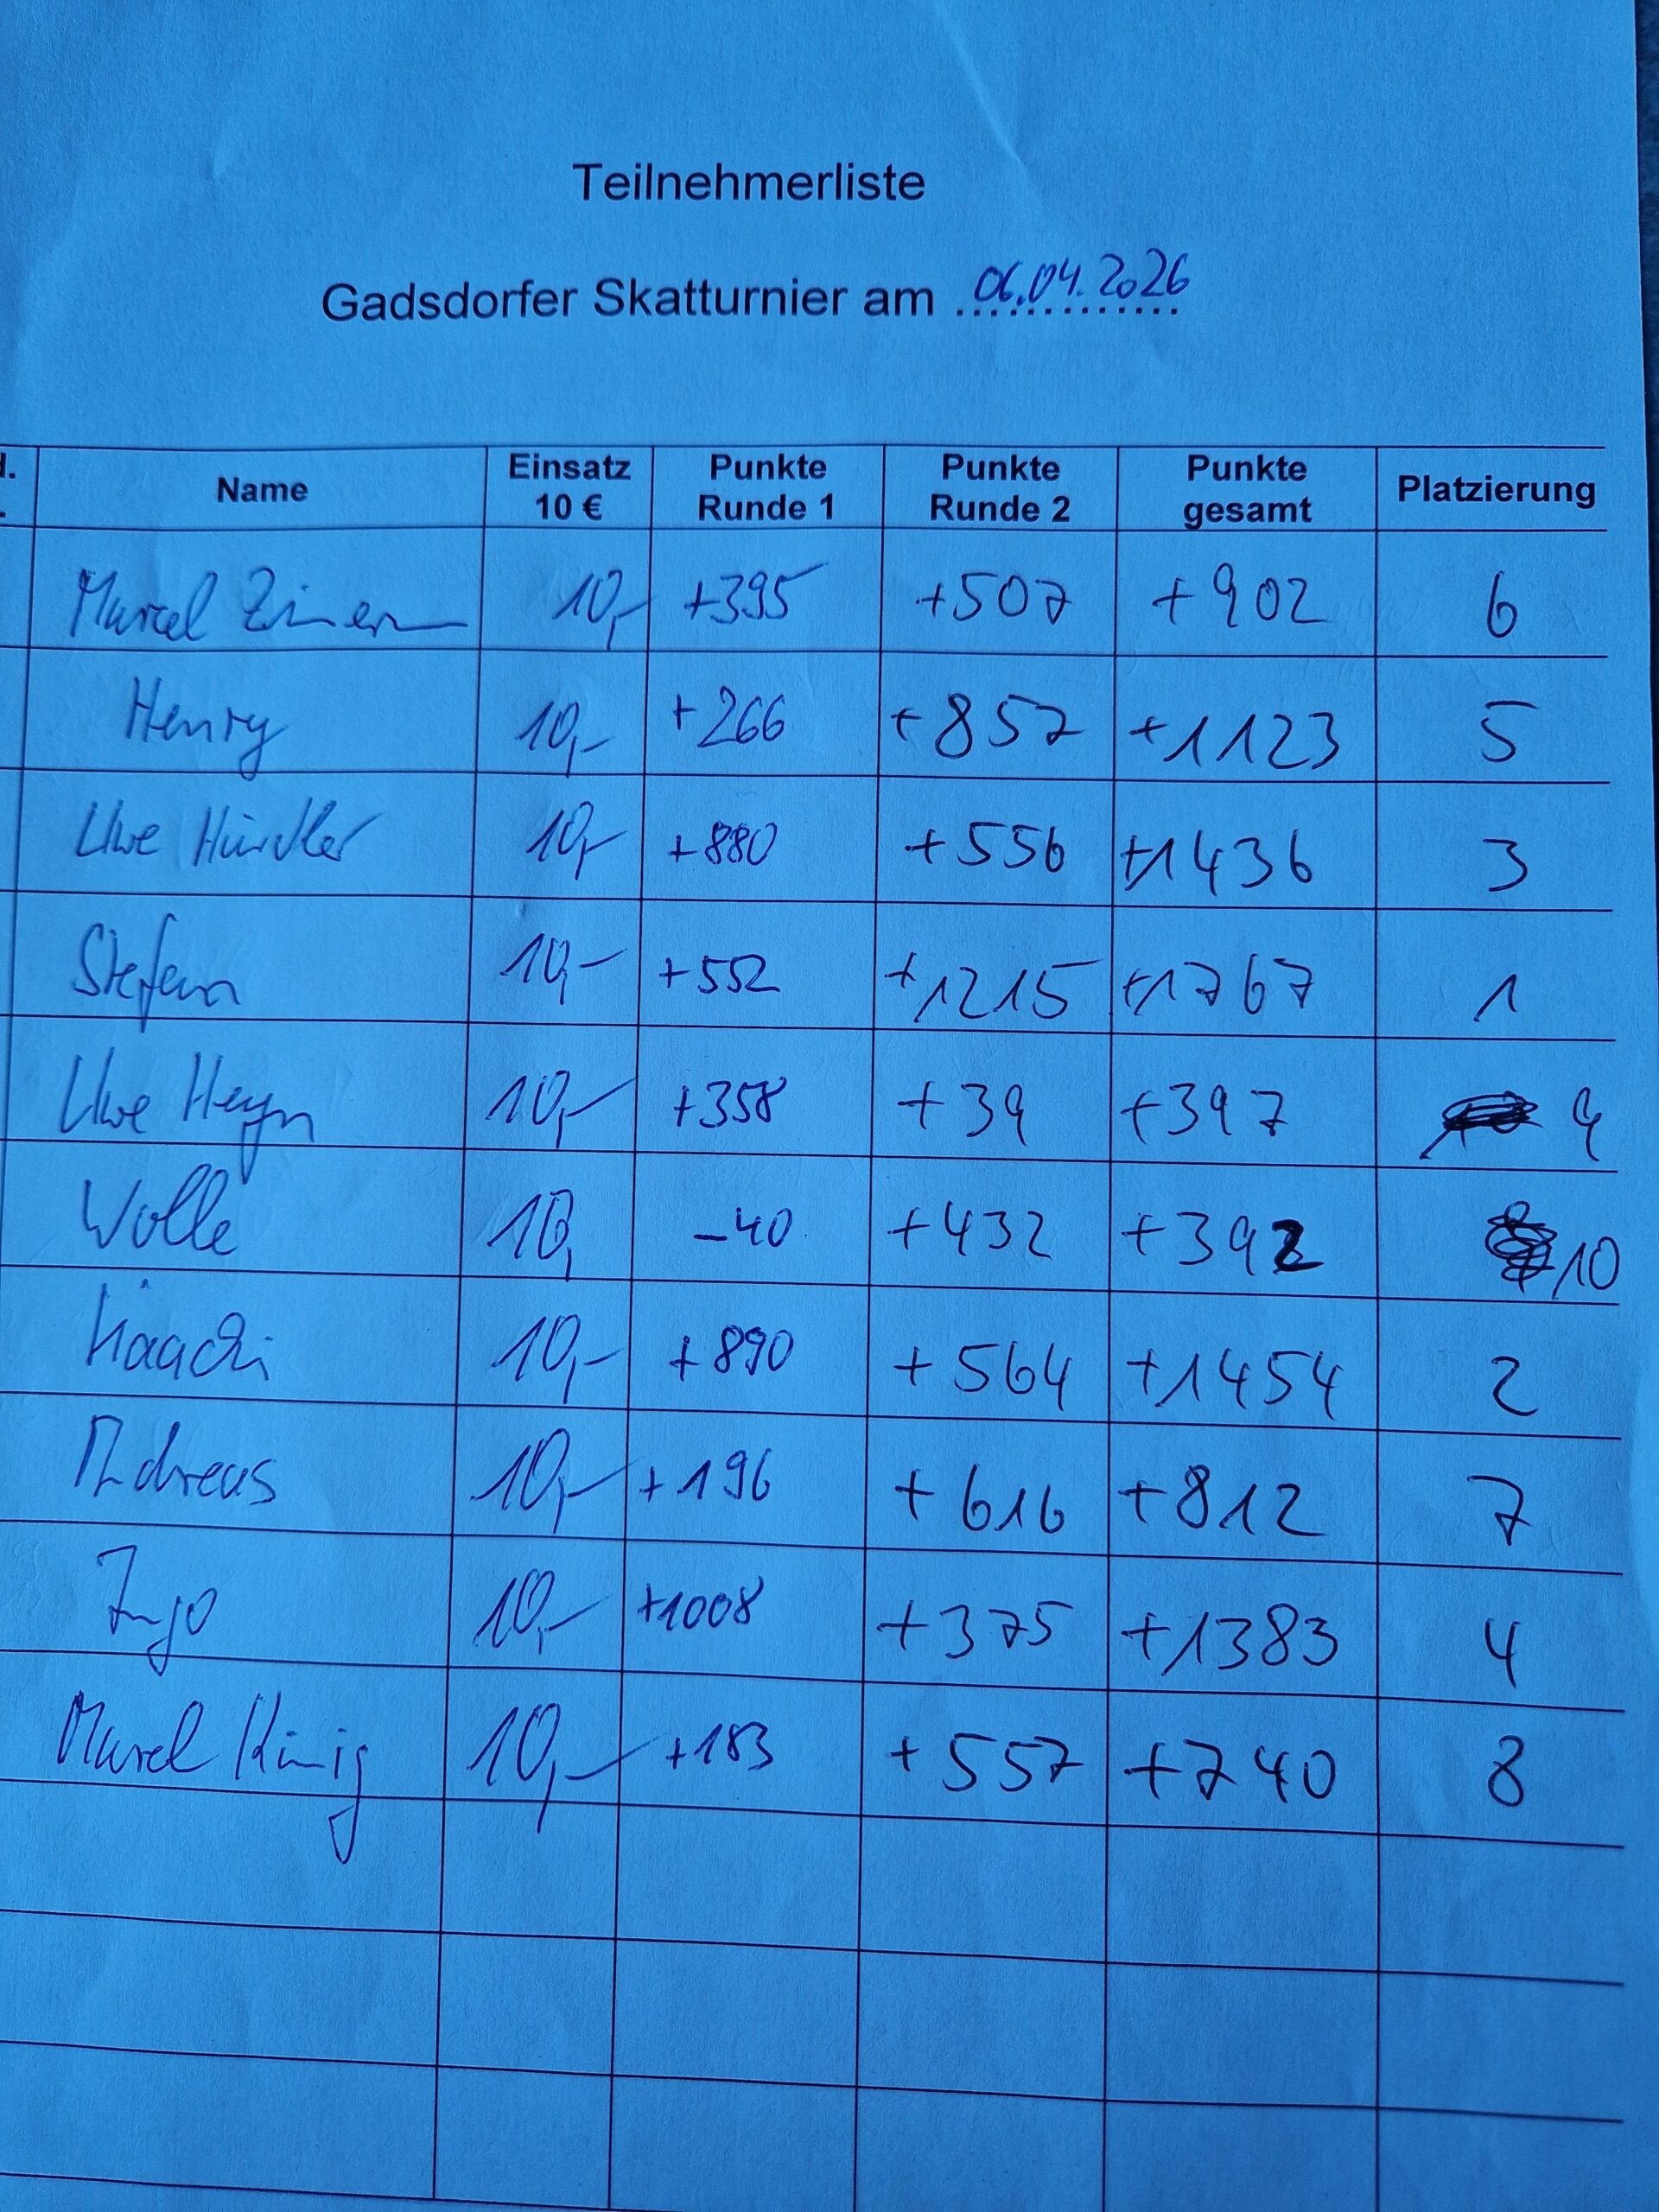 Teilnehmerliste
Gadsdorfer Skatturnier am 06.04.2026
d. Name Einsatz 10 € Punkte Runde 1 Punkte Runde 2 Punkte gesamt Platzierung
Marcel 10,- +395 +507 +902 6
Henry 10,- +266 +857 +1123 5
Uwe 10,- +880 +556 +1436 3
Stefan 10,- +552 +1215 +1767 1
Uwe Heyn 10,- +358 +39 +397 9
Wolle 10, -40 +432 +392 10
10,- +890 +564 +1454 2
Andreas 10,- +196 +616 +812 7
Ingo 10,- +1008 +375 +1383 4
Marcel König 10,- +183 +557 +740 8